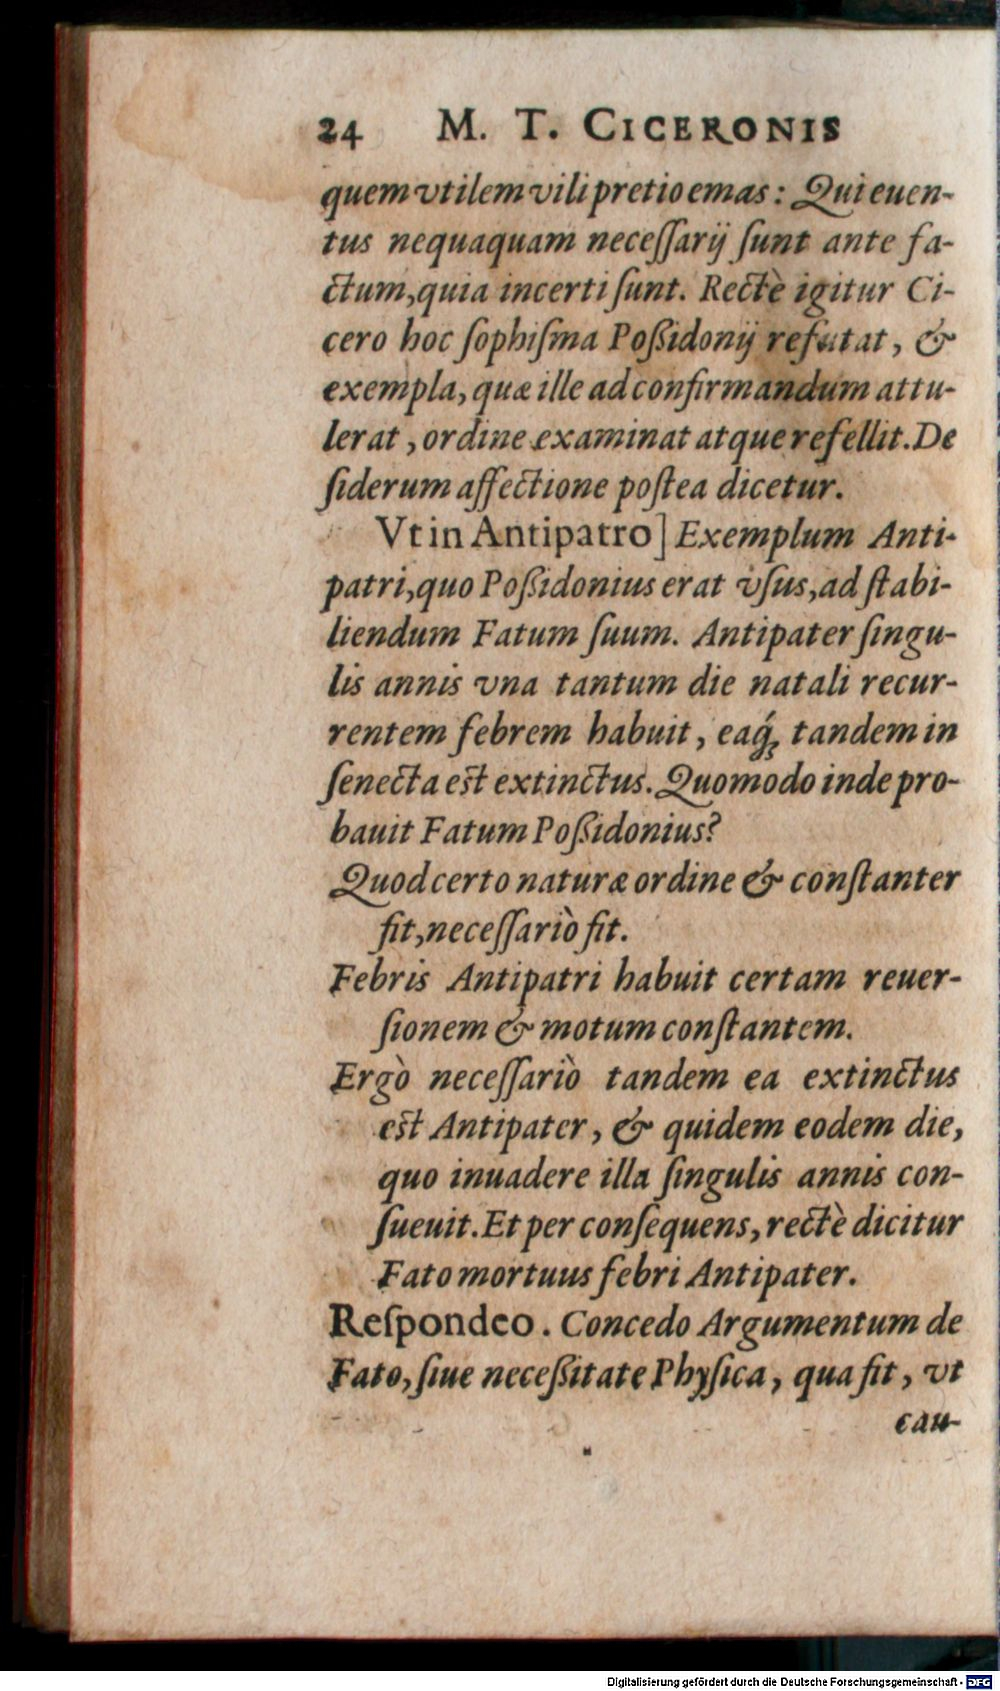 24 M. T. CICERONIS
quem vtilem vili pretio emas: Qui euen-
tus nequaquam neceſſarij ſunt ante fa-
ctum, quia incerti ſunt. Rectè igitur Ci-
cero hoc ſophiſma Poßidonij refutat, &
exempla, quæ ille ad confirmandum attu-
lerat, ordine examinat atque refellit. De
ſiderum affectione poſtea dicetur.
Vt in Antipatro] Exemplum Anti-
patri, quo Poßidonius erat vſus, ad ſtabi-
liendum Fatum ſuum. Antipater ſingu-
lis annis vna tantum die natali recur-
rentem febrem habuit, eaq́ꝫ tandem in
ſenecta eſt extinctus. Quomodo inde pro-
bauit Fatum Poßidonius?
Quod certo naturæ ordine & conſtanter
fit, neceſſariò fit.
Febris Antipatri habuit certam reuer-
ſionem & motum conſtantem.
Ergò neceſſariò tandem ea extinctus
eſt Antipater, & quidem eodem die,
quo inuadere illa ſingulis annis con-
ſueuit. Et per conſequens, rectè dicitur
Fato mortuus febri Antipater.
Reſpondeo. Concedo Argumentum de
Fato, ſiue neceßitate Phyſica, qua fit, vt
cau-
Digitalisierung gefördert durch die Deutsche Forschungsgemeinschaft - DFG